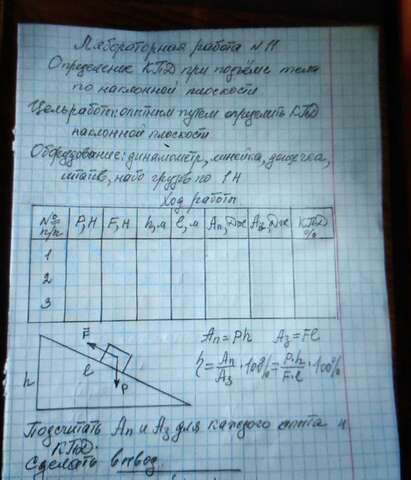 Лабораторная работа №11
Определение КПД при подъёме тела
по наклонной плоскости
Цель работы: опытным путем определить КПД
наклонной плоскости
Оборудование: динамометр, линейка, дощечка,
штатив, набор грузов по 1Н
Ход работы
№ п/п P,Н F,Н h,м l,м Aп,Дж Aз,Дж КПД %
1
2
3
Aп = Ph Aз = Fl
η = Aп/Aз · 100% = P·h/F·l · 100%
F
l
P
h
Подсчитать Aп и Aз для каждого опыта и
КПД.
Сделать вывод